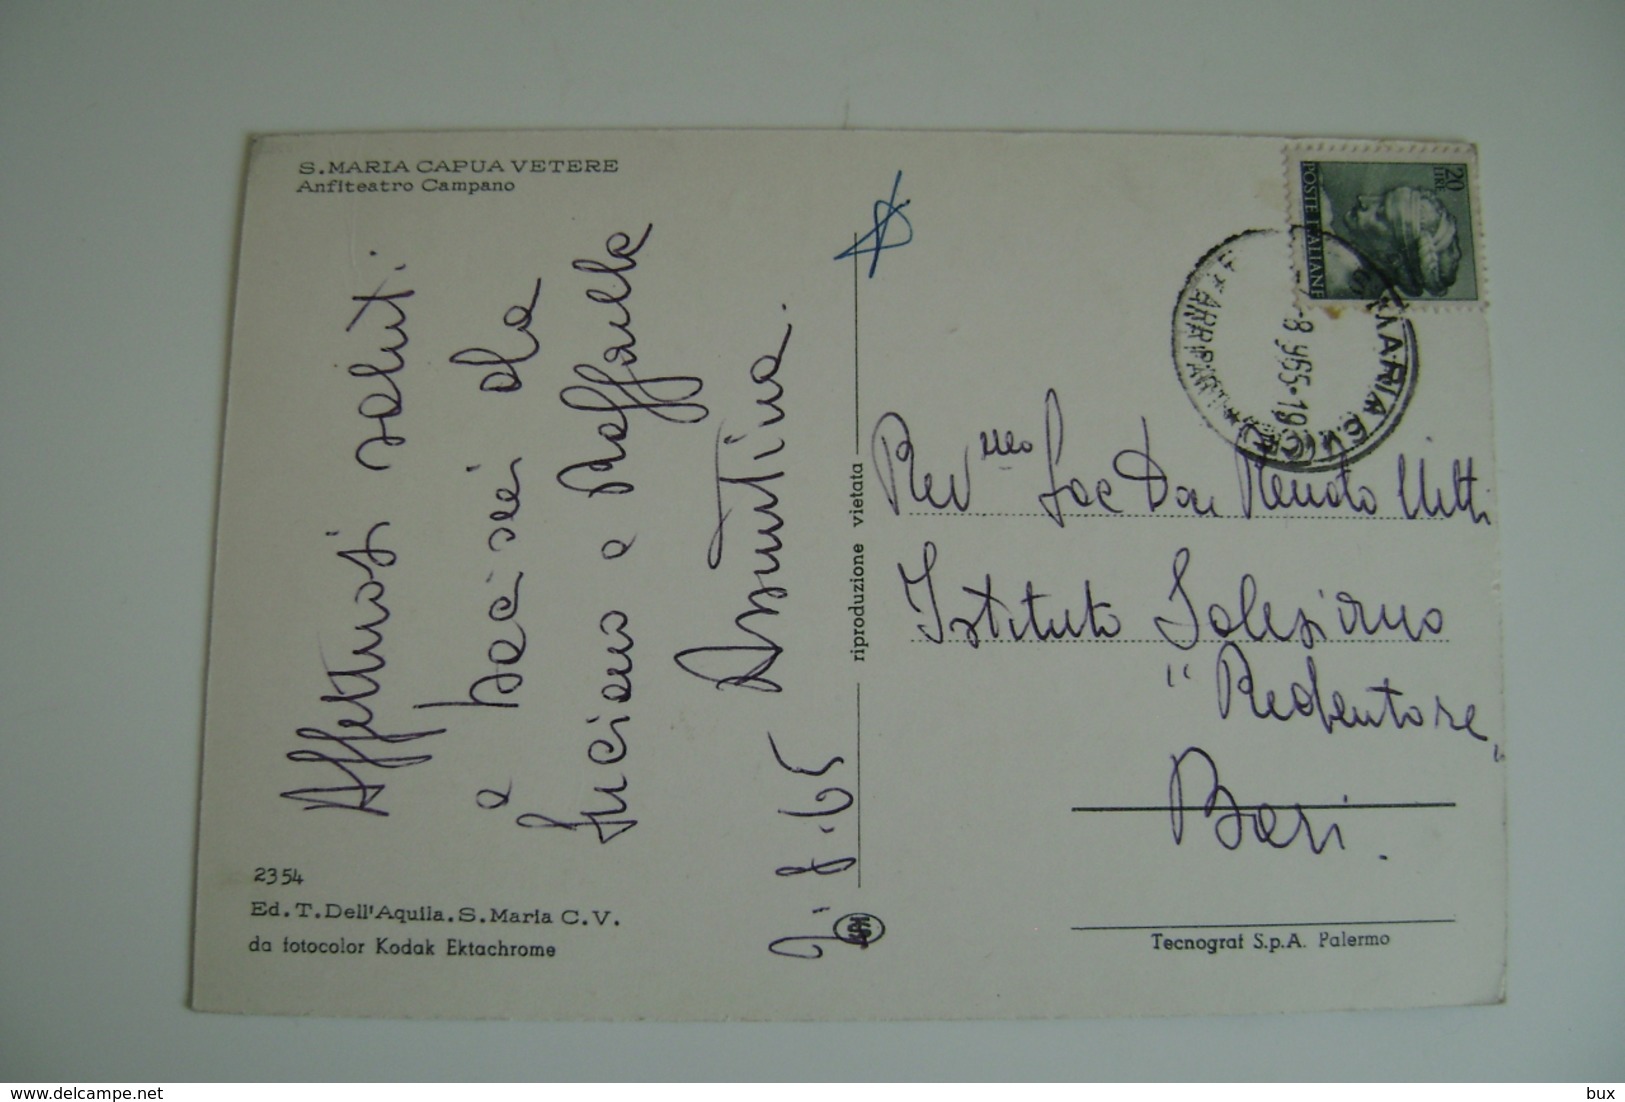 S. MARIA CAPUA VETERE
Anfiteatro Campano
Affettuosi saluti
e baci sei da
Luciano e Raffaella
Assuntina.
7-8-65
2354
Ed. T. Dell'Aquila. S. Maria C. V.
da fotocolor Kodak Ektachrome
riproduzione vietata
20
LIRE
POSTE ITALIANE
-8 965-19
Rev.mo Sac Don Renato Vitti
Istituto Salesiano
"Redentore"
Bari.
Tecnograf S.p.A. Palermo
delcampe.net
bux